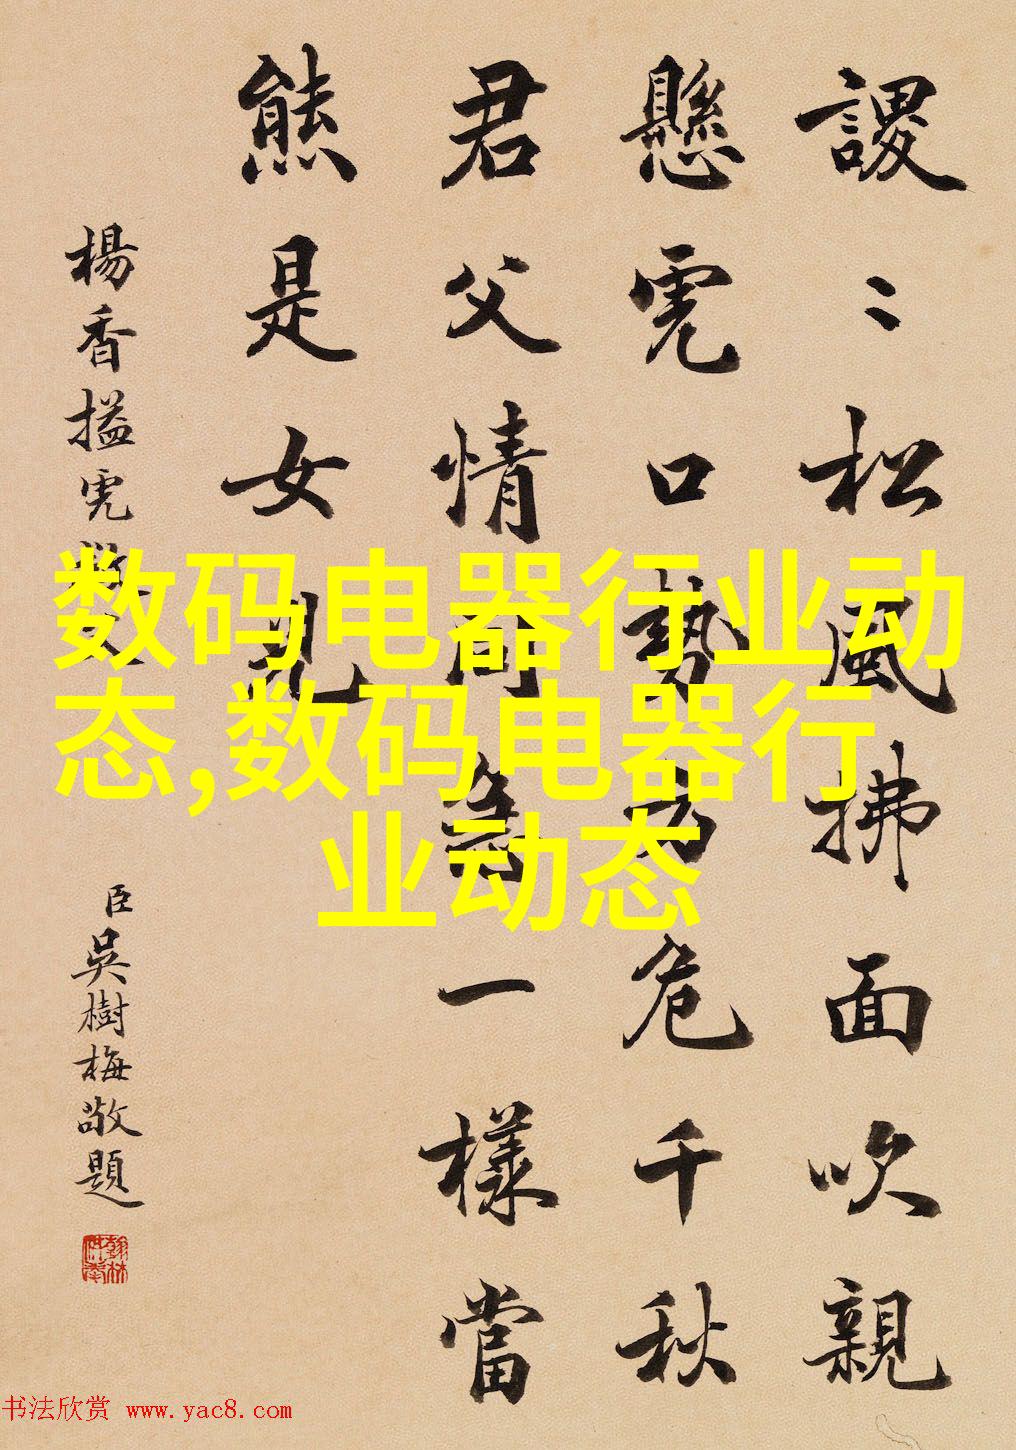 謖〻松風拂面吹親
懸虎口勢方危千秋
君父情同急一樣當
熊是女兒
楊香搤虎救父
臣吳樹梅敬題
数码电器行业动
态,数码电器行
业动态
书法欣赏 www.yac8.com